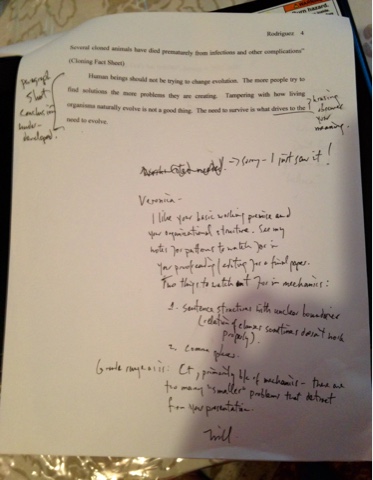 Rodriguez 4
Several cloned animals have died prematurely from infections and other complications"
(Cloning Fact Sheet)
Human beings should not be trying to change evolution. The more people try to
find solutions the more problems they are creating. Tampering with how living
organisms naturally evolve is not a good thing. The need to survive is what drives to the
need to evolve.
paragraph
short
conclusion
under-
developed.
phrasing
obscures
your
meaning.
Works Cited needed. → sorry - I just saw it!
Veronica -
I like your basic working premise and
your organizational structure. See my
notes for patterns to watch for in
your proofreading/editing for a final paper.
Two things to watch out for in mechanics:
1. sentence structures with unclear boundaries
(relation of clauses sometimes doesn't work
properly).
2. comma splices.
Grade range is: C+, primarily b/c of mechanics - there are
too many "smaller" problems that detract
from your presentation.
Will